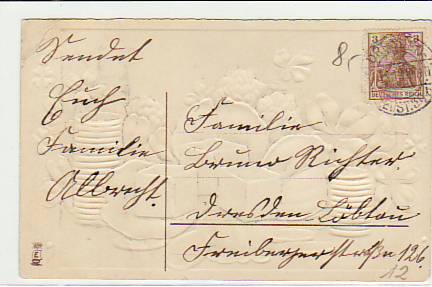 Sendet
Euch
Familie
Albrecht.
8,-
3 3
DEUTSCHES REICH
Familie
Bruno Richter.
Dresden Löbtau
Freibergerstraße 126
12